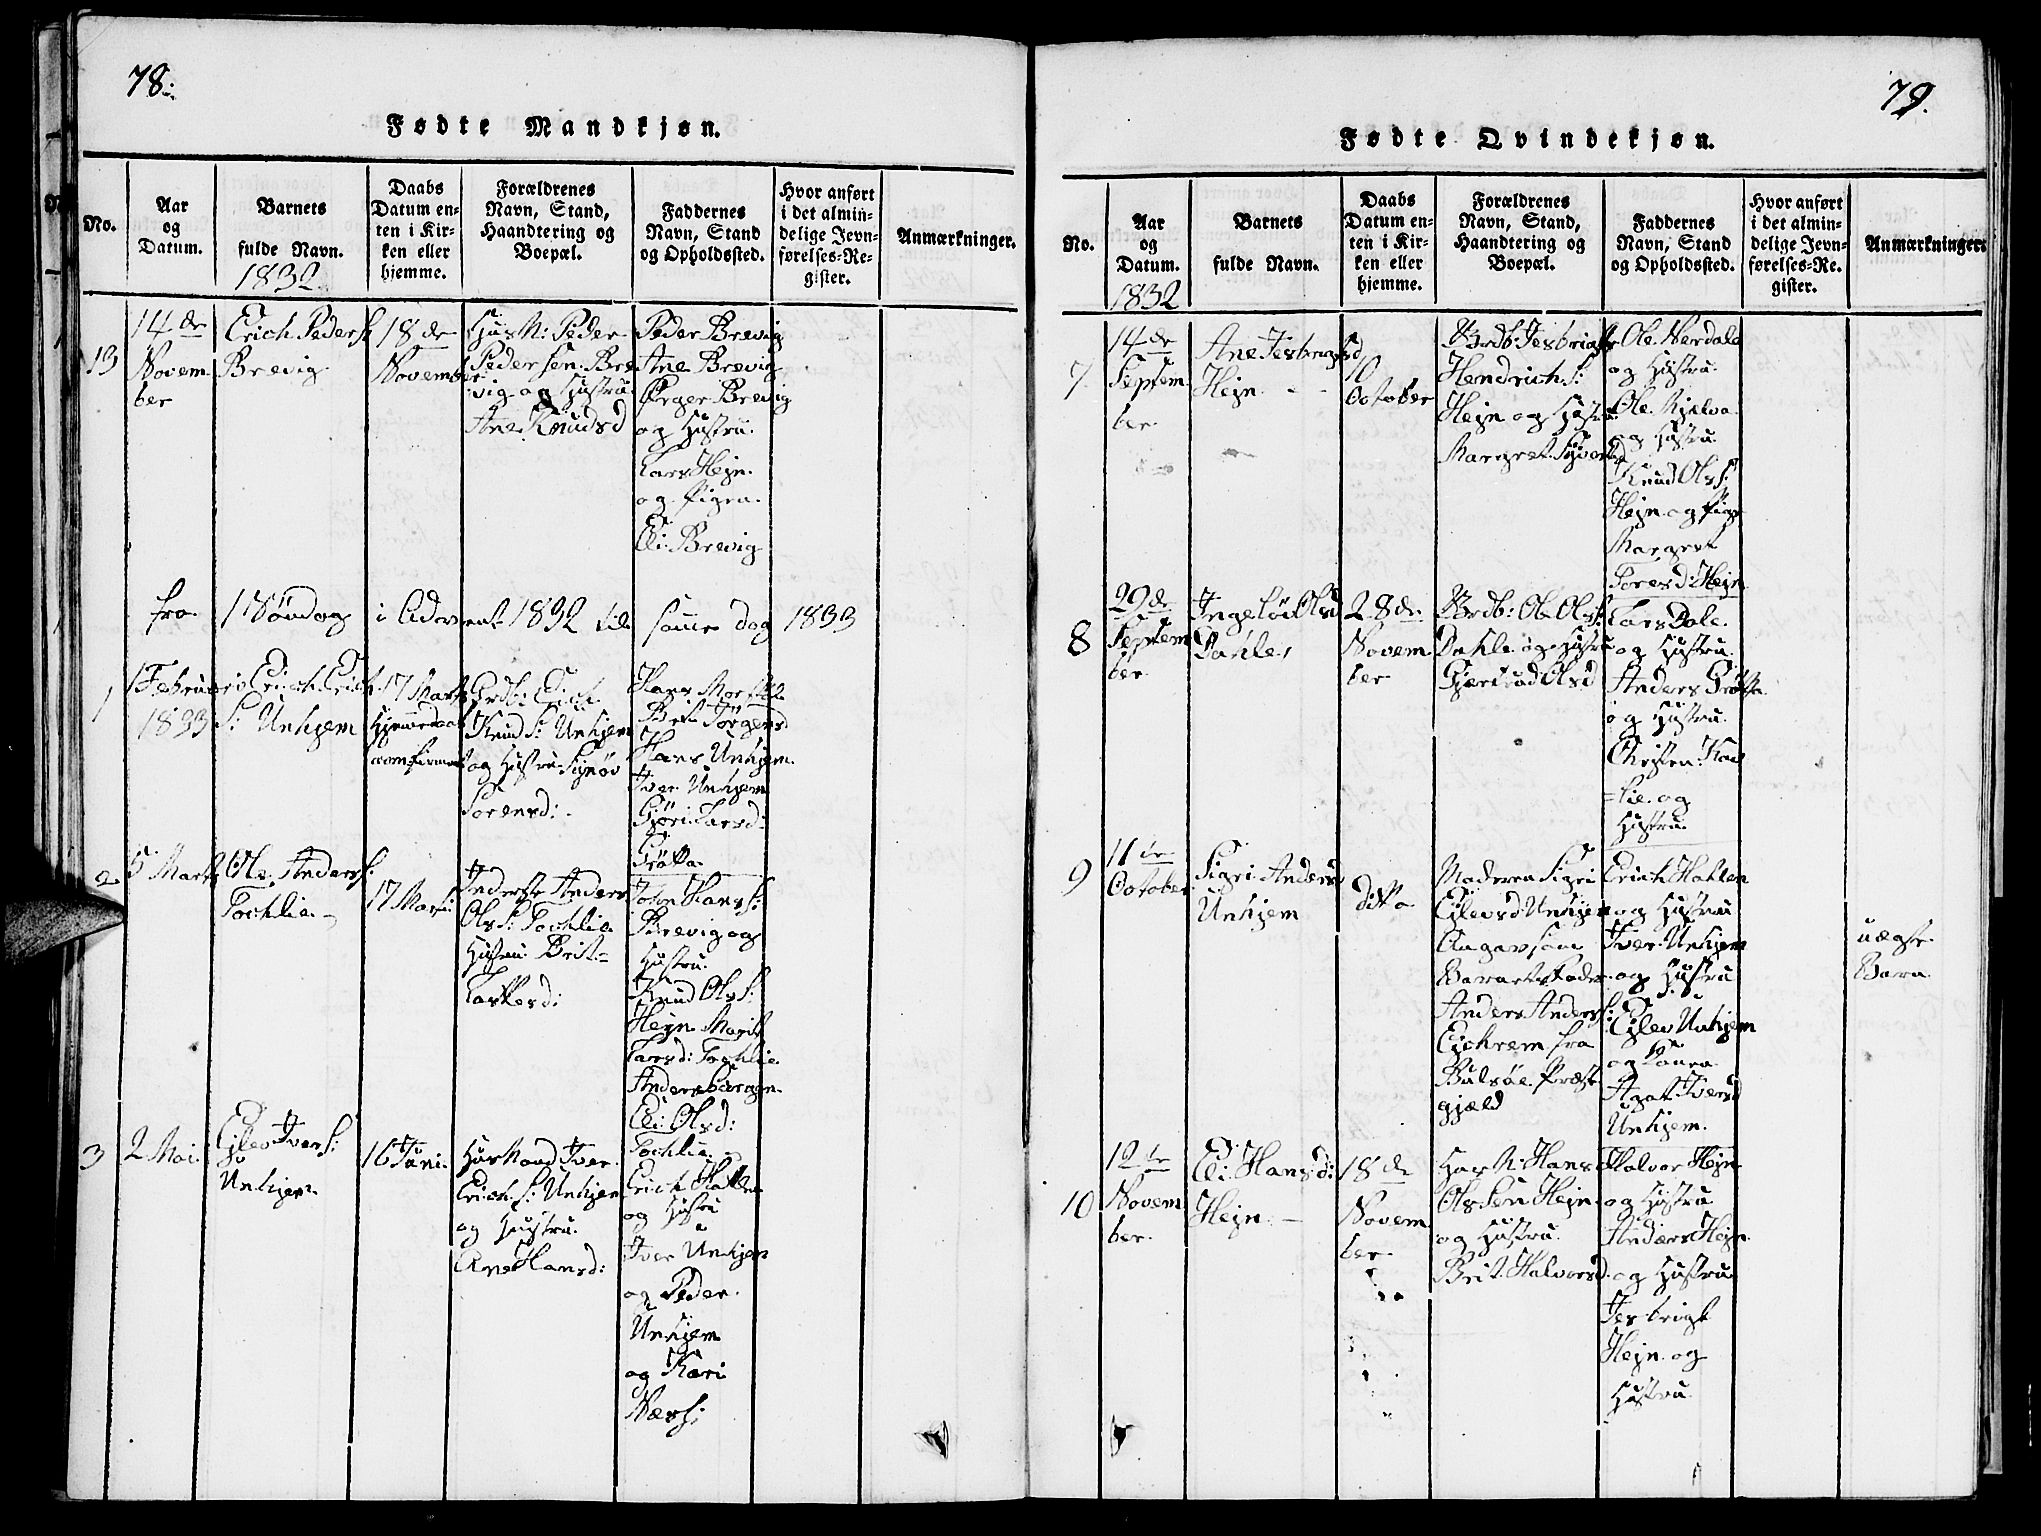 78.
Fødte Mandkjøn.
No.
Aar
og
Datum.
Barnets
fulde Navn.
1832
Daabs
Datum en-
ten i Kir-
ken eller
hjemme.
Forældrenes
Navn, Stand,
Haandtering og
Boepæl.
Faddernes
Navn, Stand
og Opholdssted.
Hvor anført
i det almin-
delige Jevn-
førelses-Re-
gister.
Anmærkninger.
13
14de
Novem
ber
Erich Peders:
Brevig
18de
November
Husm: Peder
Pedersen Bre
vig og Hustru
Ane Knudsd
Peder Brevig
Ane Brevig
Ørger Brevig
og Hustru
Lars Hejn
og Pigen
Eli Brevig
fra 1 Søndag i Advent 1832 til samme Dag 1833
1
1 Februar
1833
Erich Erich
S: Unhjem
17 Marts
Hjemmedøbt
confirmert
Grdb: Erich
Knud S: Unhjem
og Hustru Synøv
Sorensd:
Hans
Brit Jørgensd
Hans Unhjem
Iver Unhjem
Gjøri Larsd:
Grøtta
2
5 Marts
Ole Anders:
Tochlie
17 Marts
Inderste Anders
Ols S: Tochlie
Hustru Brit
Lassesd:
John Hans S:
Brevig og
Hustru
Knud Ols S:
Hejn Marit
Larsd: Tochlie
Anders
Eli Olsd:
Tochlie
3
2 Mai
Ejlev Ivers:
Unhjem
16 Juni
Husmand Iver
Erich S: Unhjem
og Hustru
Ane Hansd:
Erich Hatlen
og Hustru
Iver Unhjem
og Peder
Unhjem
og Kari
79.
Fødte Qvindekjøn.
No.
Aar
og
Datum.
1832
Barnets
fulde Navn.
Daabs
Datum en-
ten i Kir-
ken eller
hjemme.
Forældrenes
Navn, Stand,
Haandtering og
Boepæl.
Faddernes
Navn, Stand
og Opholdssted.
Hvor anført
i det almin-
delige Jevn-
førelses-Re-
gister.
Anmærkninger.
7
14de
Septem
ber
Ane Jesbrigtsd
Hejn
10
October
Grdb: Jesbrigt
Hendrich S:
Hejn og Hustru
Margret Syversd
Ole Nerdale
og Hustru
Ole Kjelva
og Hustru
Knud Ols S:
Hejn og Pige
Margret
Toresd: Hejn
8
29de
Septem
ber
Ingeløv Olsd
Dahle
28de
Novem
ber
Grdb: Ole Ols S:
Dahle og Hustru
Gjertrud Olsd
Lars Dale
og Hustru
Anders Grøtta
og Hustru
Christen Kors
=lie og
Hustru
9
11te
October
Sigri Andersd
Unhjem
ditto
Moderen Sigri
Ejlevsd Unhjem
Angav som
Barnets Fader
Anders Anders S:
Ejchrem fra
Bulsøe Præste
gjæld
Erich Hatlen
og Hustru
Iver Unhjem
og Hustru
Ejlev Unhjem
og Kona
Agat Iversd
Unhjem
uægte
Barn
10
12te
Novem
ber
Eli Hansd:
Hejn
18de
Novem
ber
Husm: Hans
Olssen Hejn
og Hustru
Brit Halvorsd
Halvor Hejn
og Hustru
Anders Hejn
og Hustru
Jesbrigt
Hejn og
Hustru